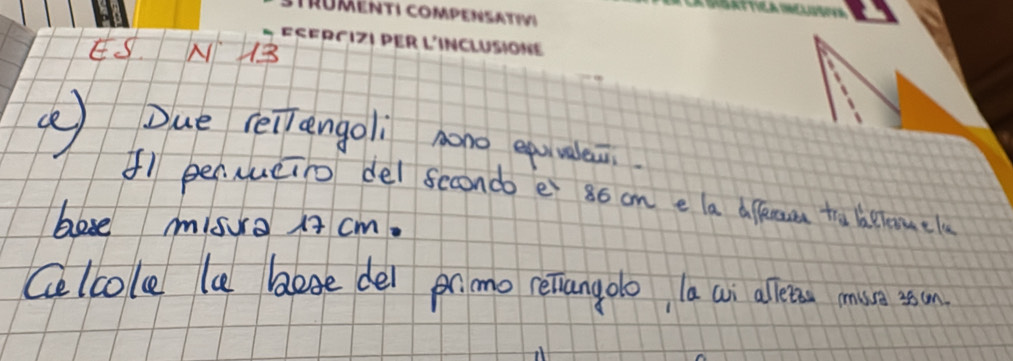 STRUMENTI COMPENSATIVI
ESERCIZI PER L'INCLUSIONE
ES. N° 13
a) Due rettangoli sono equivalenti.
Il perimetro del secondo è 86 cm e la differenza tra l'altezza e la
base misura 17 cm.
Calcola la base del primo rettangolo, la cui altezza misura cm.